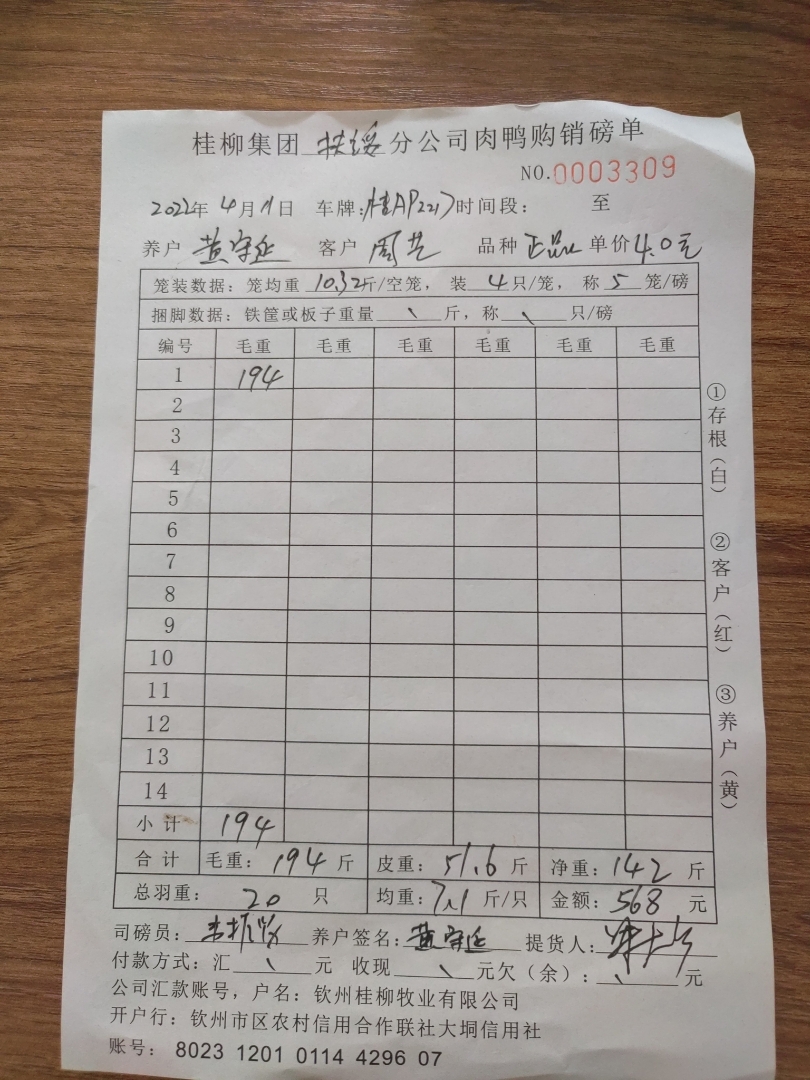 桂柳集团 扶绥 分公司肉鸭购销磅单
NO.0003309
2022年 4月11日 车牌:桂AP2217 时间段: 至
养户 黄守延 客户 周艺 品种 正品 单价4.0元
笼装数据:笼均重 10.32斤/空笼,装 4只/笼,称 5 笼/磅
捆脚数据:铁筐或板子重量 、 斤,称 、 只/磅
编号 毛重 毛重 毛重 毛重 毛重 毛重
1 194
2
3
4
5
6
7
8
9
10
11
12
13
14
小计 194
合计 毛重:194斤 皮重:51.6斤 净重:142斤
总羽重:20 只 均重:7.1斤/只 金额:568 元
司磅员: 养户签名:黄守延 提货人:
付款方式:汇 、 元 收现 、 元欠(余): 、 元
公司汇款账号,户名:钦州桂柳牧业有限公司
开户行:钦州市区农村信用合作联社大垌信用社
账号: 8023 1201 0114 4296 07
①存根(白) ②客户(红) ③养户(黄)